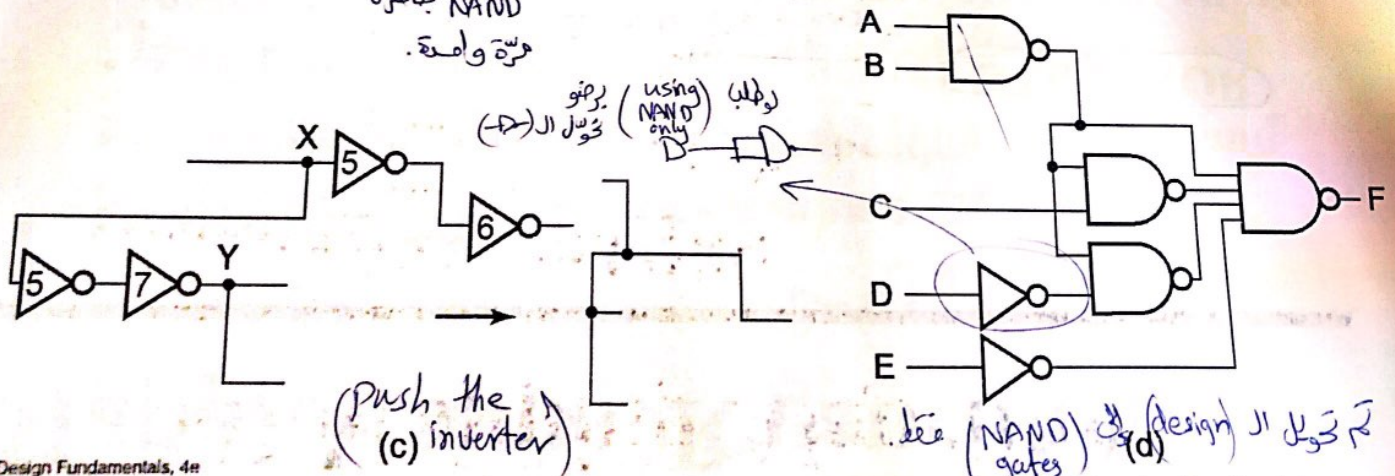 NAND مباشرة
مرّة واحدة.
لو طلب (using NAND only) برضو
نحوّل الـ
A
B
X
5
6
5
7
Y
C
D
E
F
(push the inverter)
(c)
تم تحويل الـ (design) إلى (NAND gates) فقط.
(d)
Design Fundamentals, 4e